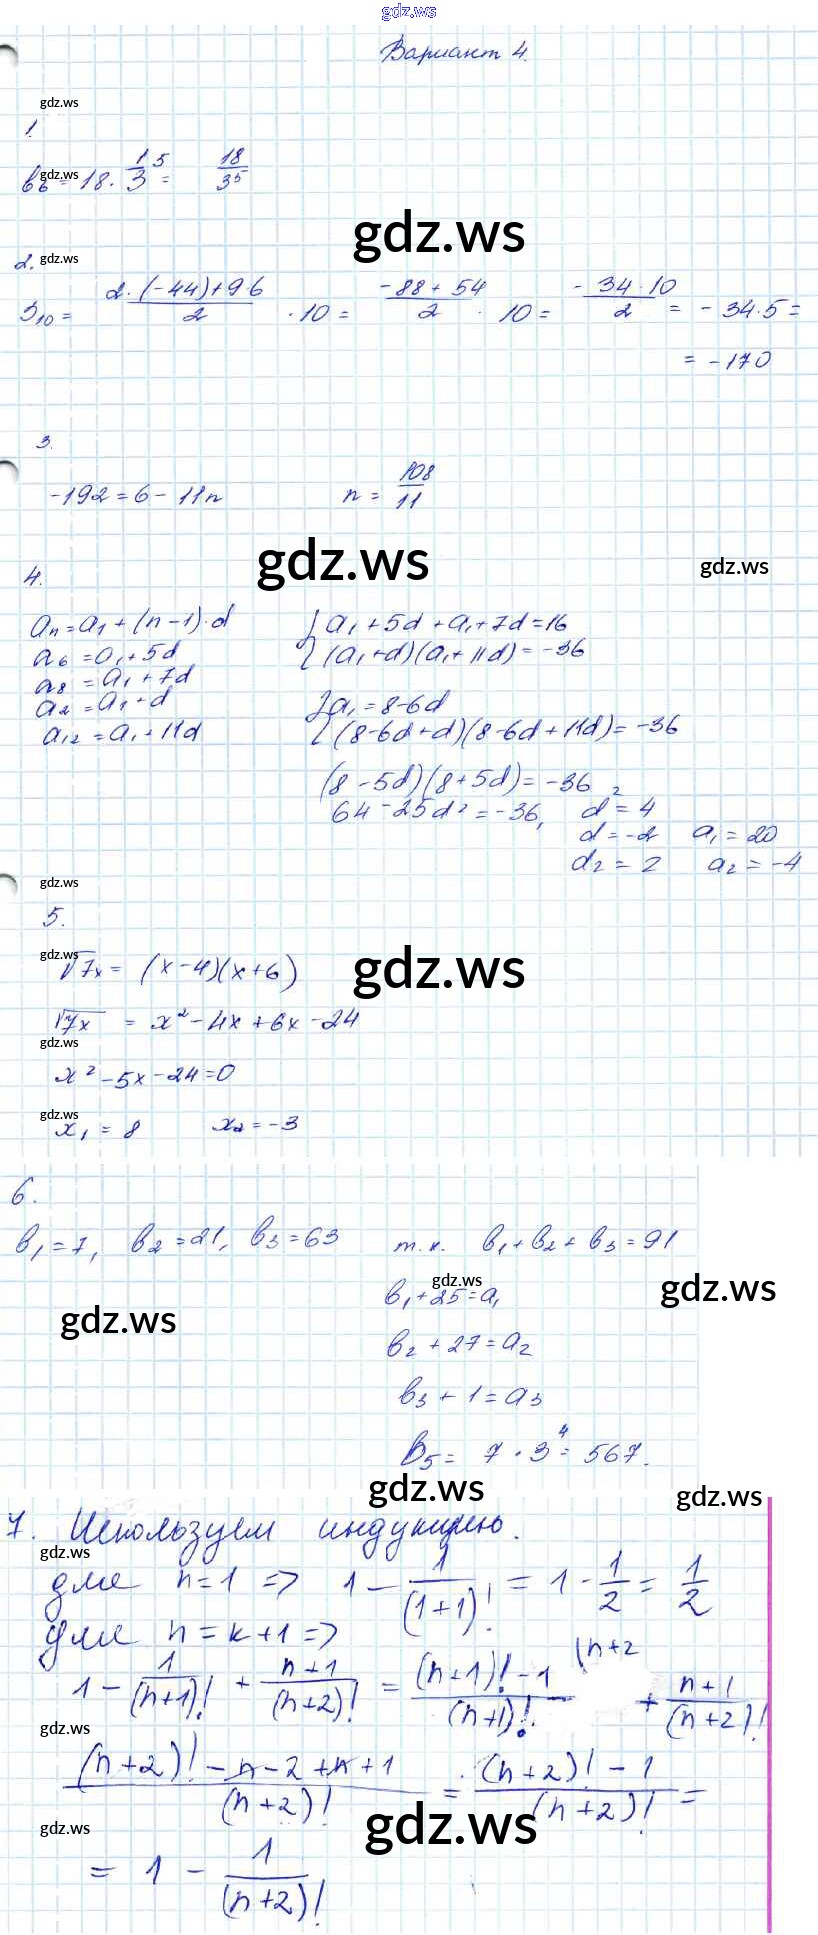 gdz.ws
Вариант 4.
gdz.ws
1.
gdz.ws
b₆ = 18 · 1/3⁵ = 18/3⁵
gdz.ws
2. gdz.ws
S₁₀ = (2·(-44)+9·6)/2 · 10 = (-88+54)/2 · 10 = -(34·10)/2 = -34·5 =
= -170
3.
-192 = 6 - 11n n = 108/11
gdz.ws
gdz.ws
4.
aₙ = a₁ + (n-1)·d { a₁ + 5d + a₁ + 7d = 16
a₆ = a₁ + 5d { (a₁+d)(a₁+11d) = -36
a₈ = a₁ + 7d
a₂ = a₁ + d { a₁ = 8-6d
a₁₂ = a₁ + 11d { (8-6d+d)(8-6d+11d) = -36
(8-5d)(8+5d) = -36
64 - 25d² = -36, d² = 4
d = -2 a₁ = 20
d₂ = 2 a₂ = -4
gdz.ws
5.
gdz.ws
√7x = (x-4)(x+6)
gdz.ws
√7x = x² - 4x + 6x - 24
gdz.ws
x² - 5x - 24 = 0
gdz.ws
x₁ = 8 x₂ = -3
6.
b₁ = 7, b₂ = 21, b₃ = 63 т.к. b₁ + b₂ + b₃ = 91
gdz.ws
gdz.ws
b₁ + 25 = a₁
gdz.ws
b₂ + 27 = a₂
b₃ + 1 = a₃
b₅ = 7 · 3⁴ = 567.
gdz.ws
gdz.ws
7. Используем индукцию.
gdz.ws
для n=1 => 1 - 1/(1+1)! = 1 - 1/2 = 1/2
для n = k+1 =>
1 - 1/(n+1)! + (n+1)/(n+2)! = ((n+1)! - 1)/(n+1)! (n+2 + (n+1)/(n+2)!
gdz.ws
((n+2)! - n - 2 + n + 1)/(n+2)! = ((n+2)! - 1)/(n+2)! =
gdz.ws
gdz.ws
= 1 - 1/(n+2)!